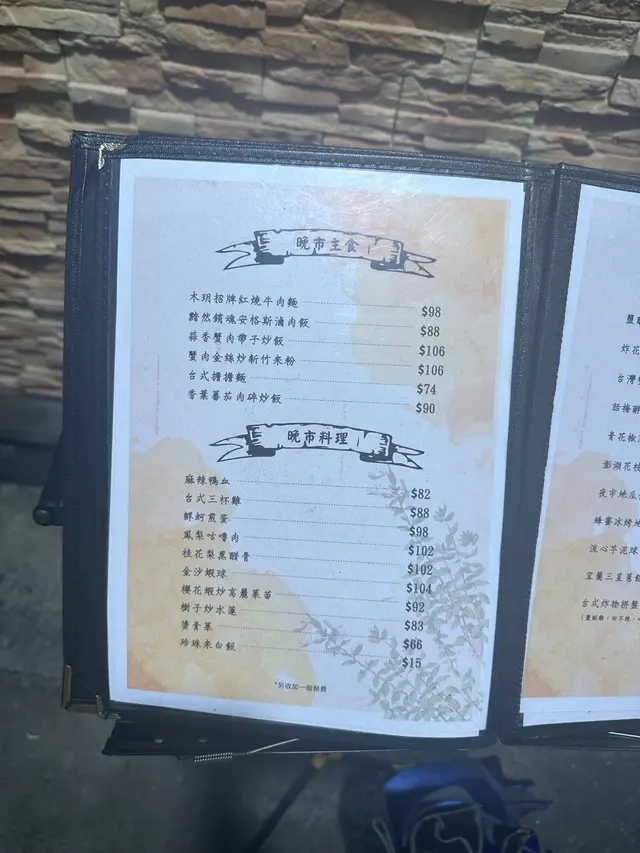 晚市主食
木玥招牌紅燒牛肉麵 $98
黯然銷魂安格斯滷肉飯 $88
蒜香蟹肉帶子炒飯 $106
蟹肉金絲炒新竹米粉 $106
台式擔擔麵 $74
香葉蕃茄肉碎炒飯 $90
晚市料理
麻辣鴨血 $82
台式三杯雞 $88
鮮蚵煎蛋 $98
鳳梨咕嚕肉 $102
桂花梨黑醋骨 $102
金沙蝦球 $104
櫻花蝦炒高麗菜苗 $92
樹子炒水蓮 $83
燙青菜 $66
珍珠米白飯 $15
*另收加一服務費
鹽
炸花
台灣
話梅
青花椒
澎湖花枝
夜市地瓜
蜂蜜冰烤地
流心芋泥球
宜蘭三星蔥
台式炸物拼盤